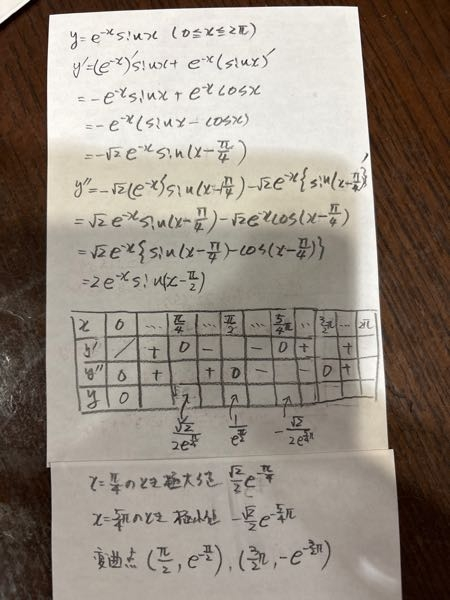 y=e^{-x}sinx (0≦x≦2π)
y'=(e^{-x})'sinx+e^{-x}(sinx)'
=-e^{-x}sinx+e^{-x}cosx
=-e^{-x}(sinx-cosx)
=-√2e^{-x}sin(x-π/4)
y''=-√2(e^{-x})'sin(x-π/4)-√2e^{-x}{sin(x-π/4)}'
=√2e^{-x}sin(x-π/4)-√2e^{-x}cos(x-π/4)
=√2e^{-x}{sin(x-π/4)-cos(x-π/4)}
=2e^{-x}sin(x-π/2)
x 0 … π/4 … π/2 … 5/4π … 3/2π … 2π
y' / + 0 - - - 0 + +
y'' 0 + + 0 - - 0 +
y 0
√2/2e^{π/4} 1/e^{π/2} -√2/2e^{5/4π}
x=π/4のとき極大値 √2/2e^{-π/4}
x=5/4πのとき極小値 -√2/2e^{-5/4π}
変曲点 (π/2, e^{-π/2}), (3/2π, -e^{-3/2π})